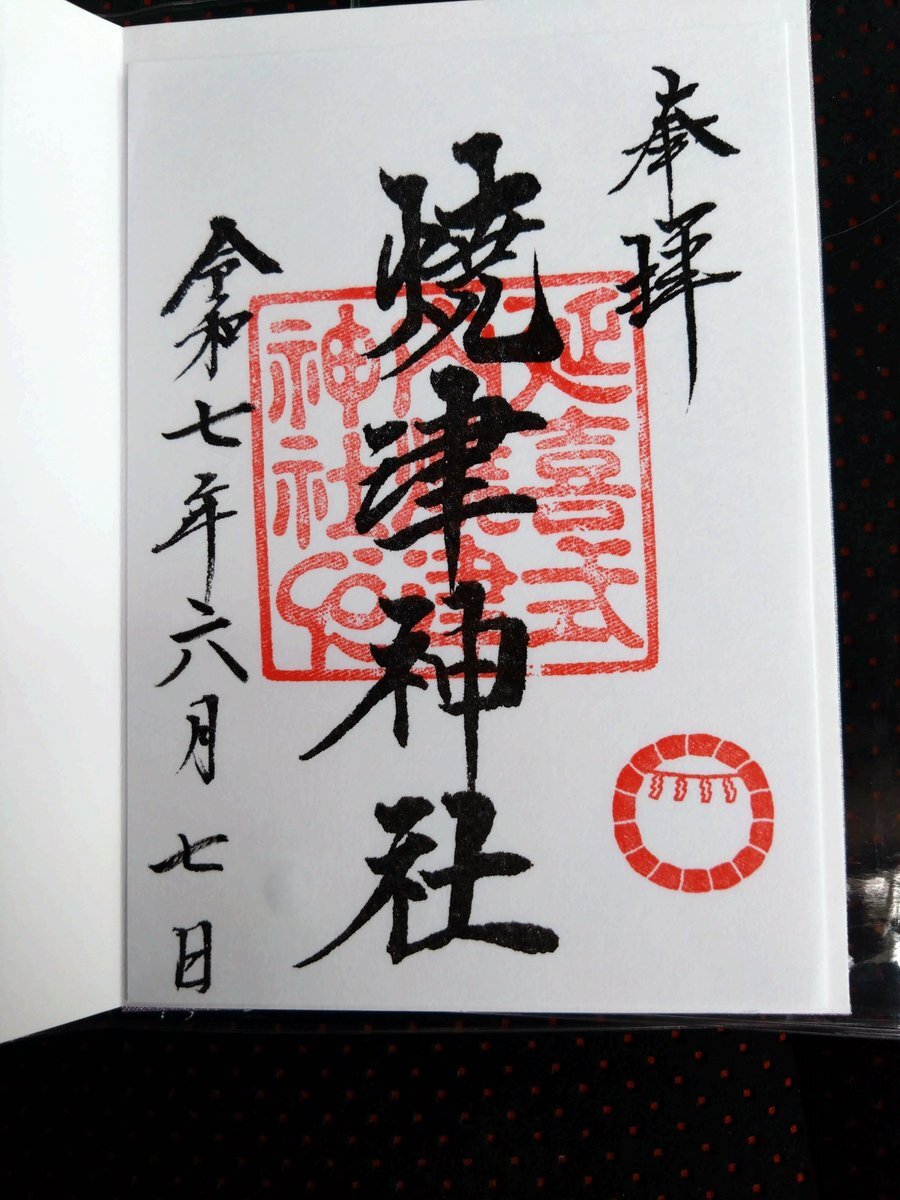 奉拝
焼津神社
延喜式
内焼津
神社
令和七年六月七日